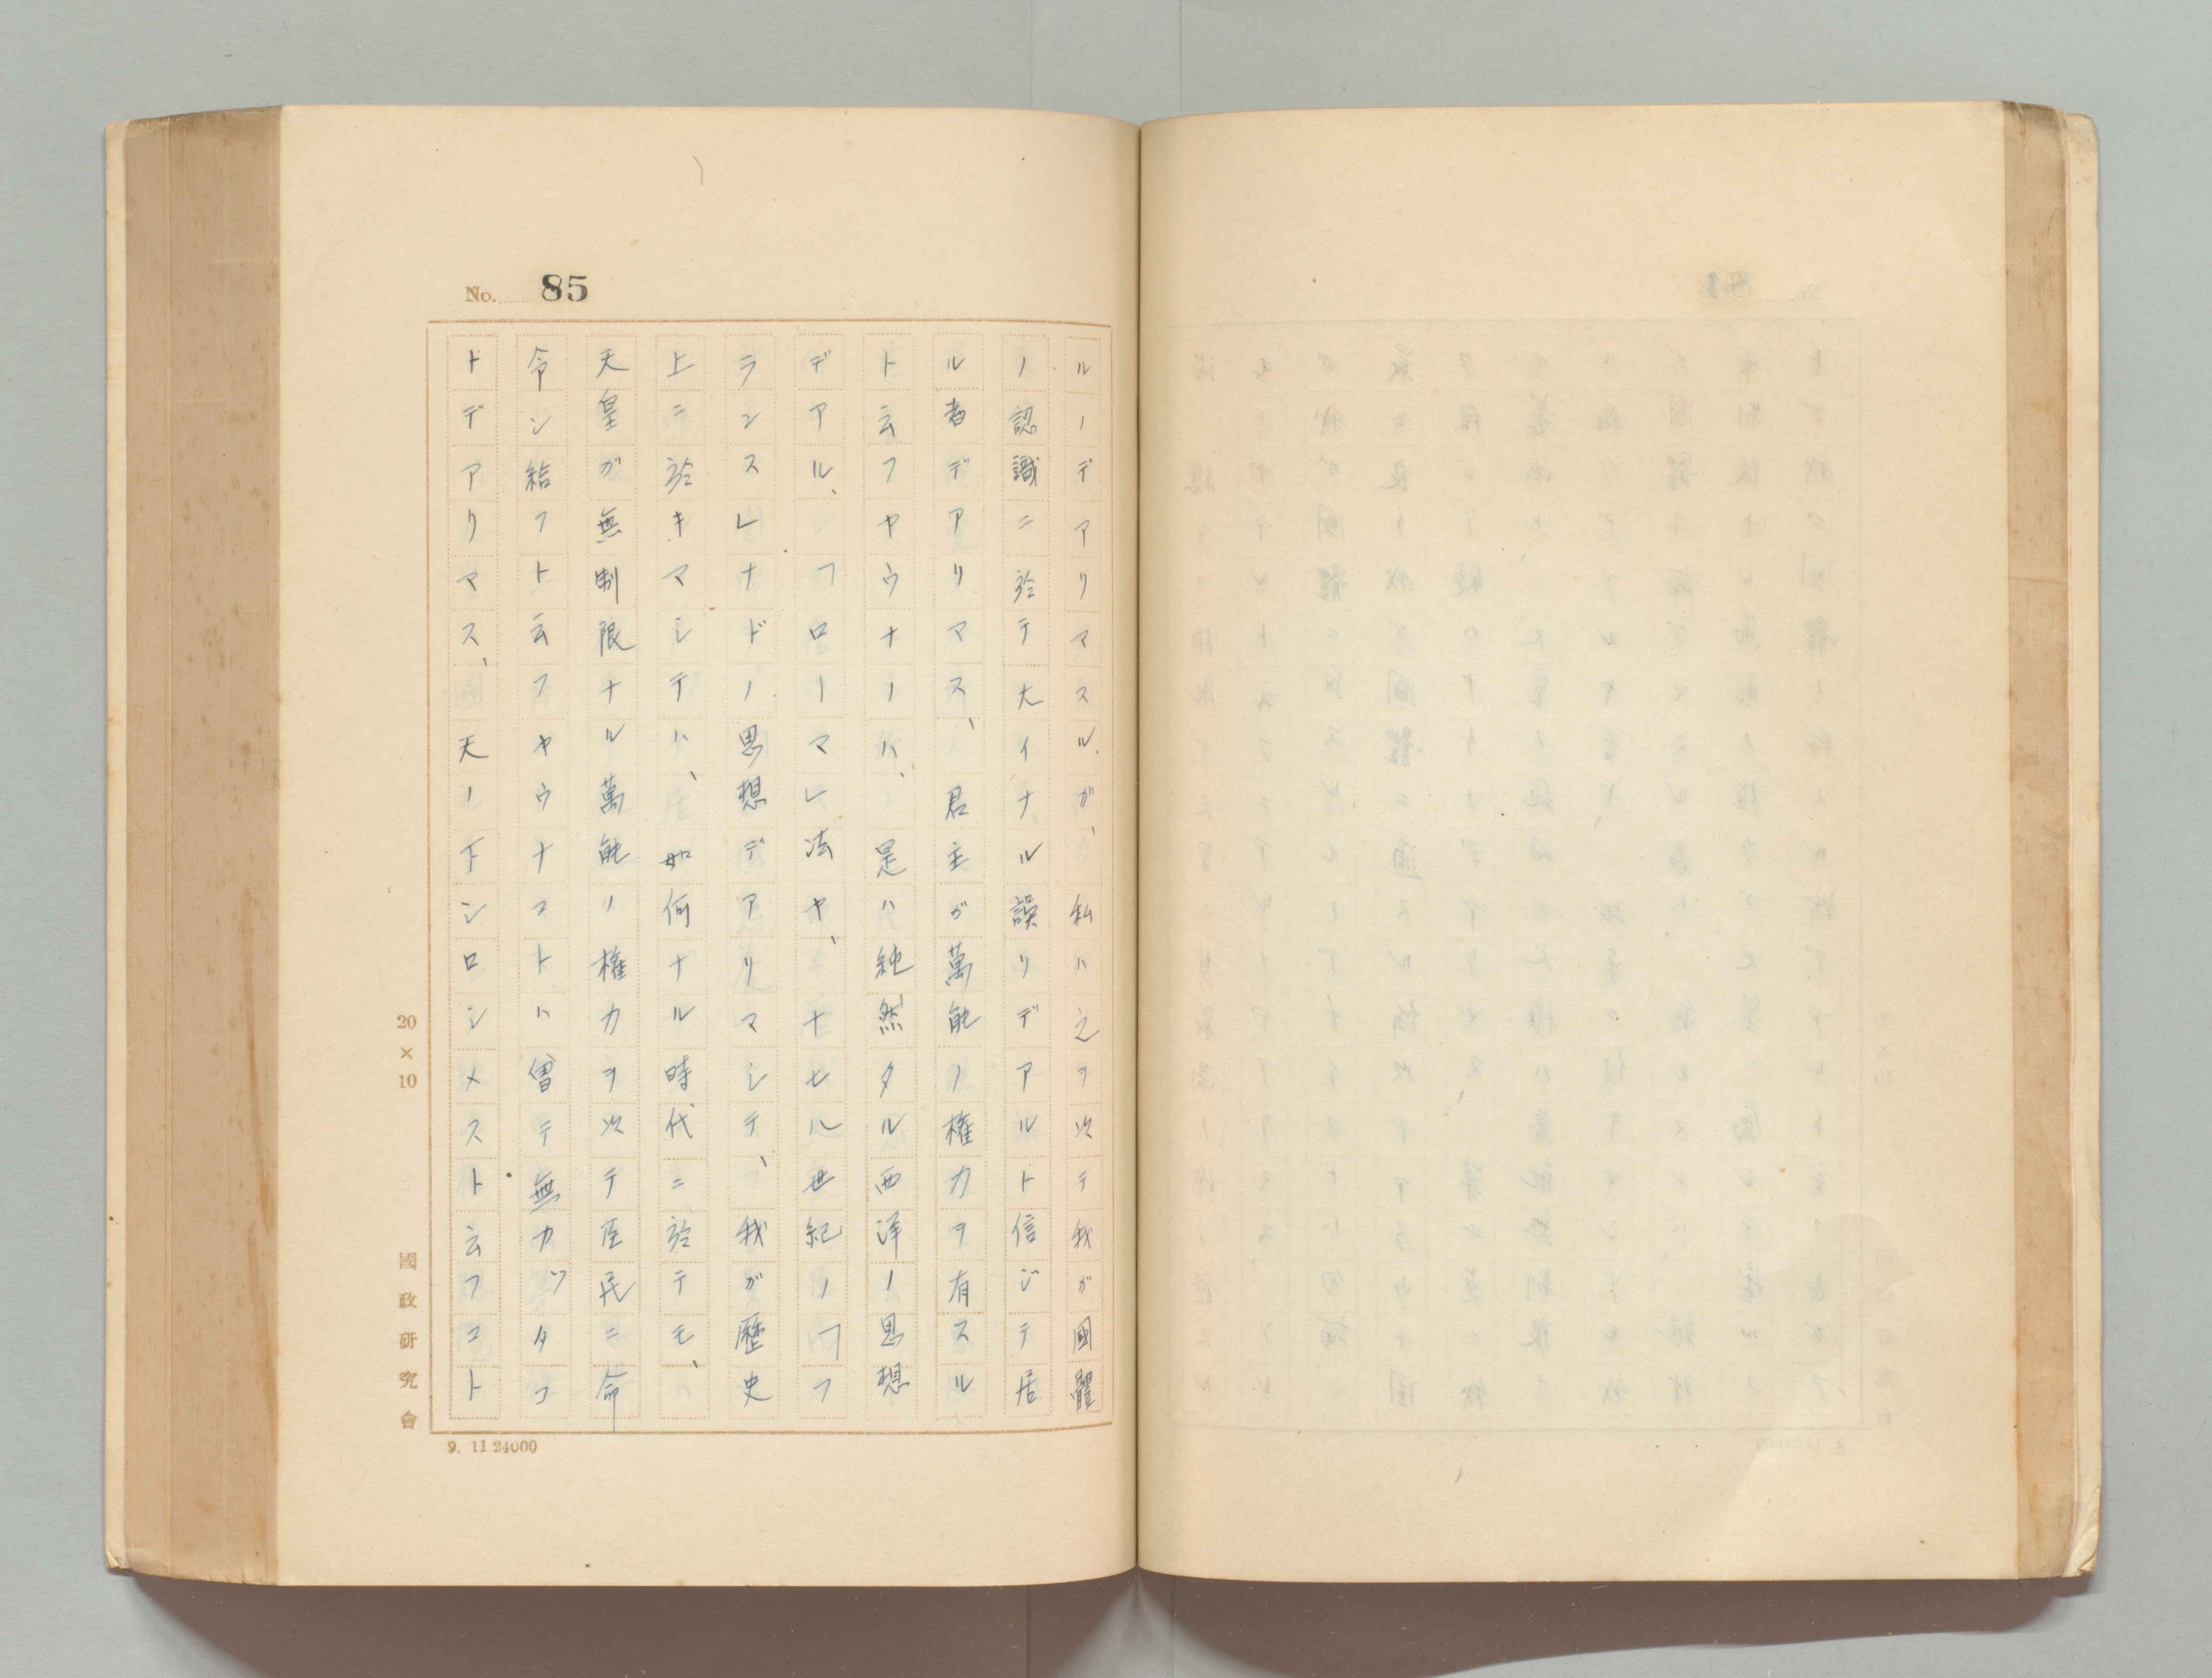 No. 85
ルノデアリマスルガ、私ハ之ヲ以テ我ガ國體
ノ認識ニ於テ大イナル誤リデアルト信ジテ居
ル者デアリマス、君主ガ萬能ノ権力ヲ有スル
ト云フヤウナノハ、是ハ純然タル西洋ノ思想
デアル、「ローマ」法ヤ、十七八世紀ノ「フ
ランスレナドノ思想デアリマシテ、我ガ歴史
上ニ於キマシテハ、如何ナル時代ニ於テモ、
天皇ガ無制限ナル萬能ノ権力ヲ以テ臣民ニ命
令シ給フト云フヤウナコトハ曾テ無カッタコ
トデアリマス、天ノ下シロシメスト云フコト
20×10
國政研究會
9. 11.24000